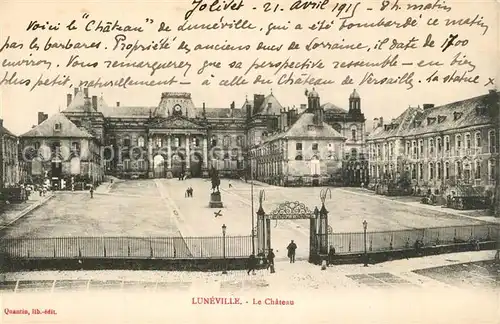 Jolivet - 21 Avril 1915 - 8h matin
Voici le "Château" de Lunéville, qui a été bombardé ce matin
par les barbares. Propriété des anciens ducs de Lorraine, il date de 1700
environ. Vous remarquerez que sa perspective ressemble - en bien
plus petit, naturellement - à celle du Château de Versailles, - la statue
LUNÉVILLE. - Le Château
Quantin, lib.-édit.